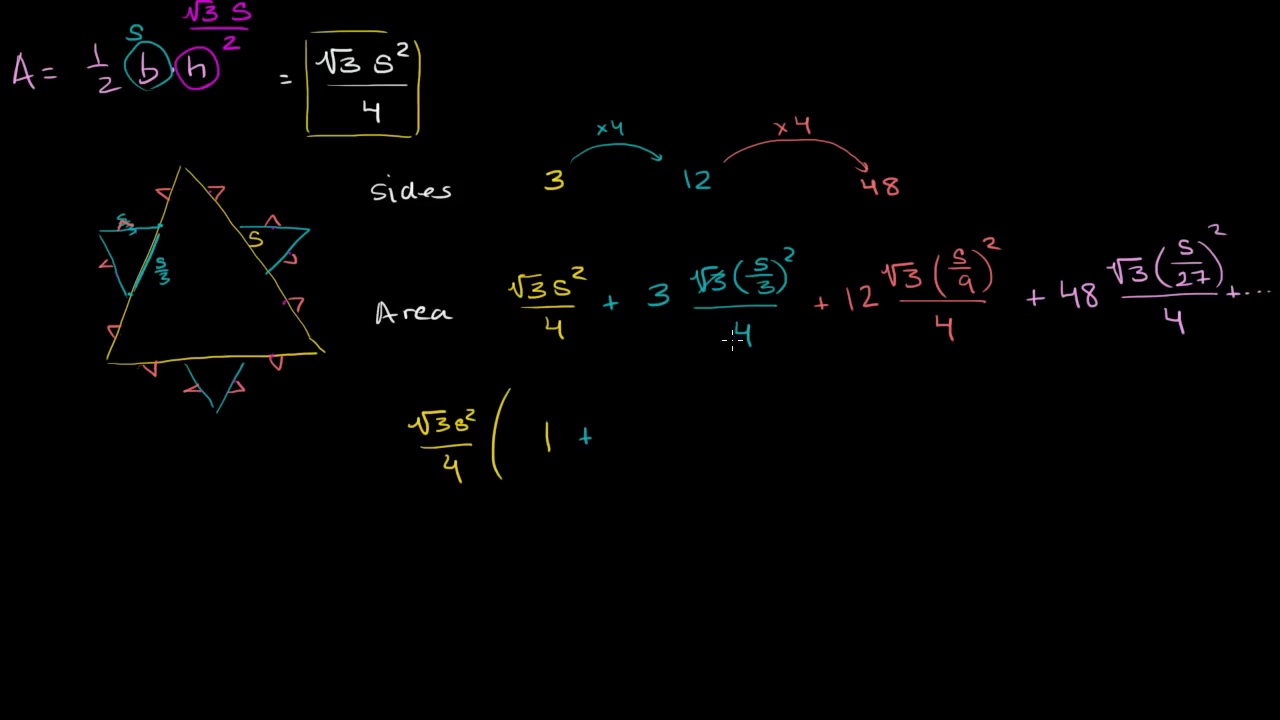 √3 S
S 2
A = 1/2 b · h = √3 S²/4
x4 x4
sides 3 12 48
S/3 S
S/3
Area √3 S²/4 + 3 √3 (S/3)²/4 + 12 √3 (S/9)²/4 + 48 √3 (S/27)²/4 + ...
√3 S²/4 ( 1 +